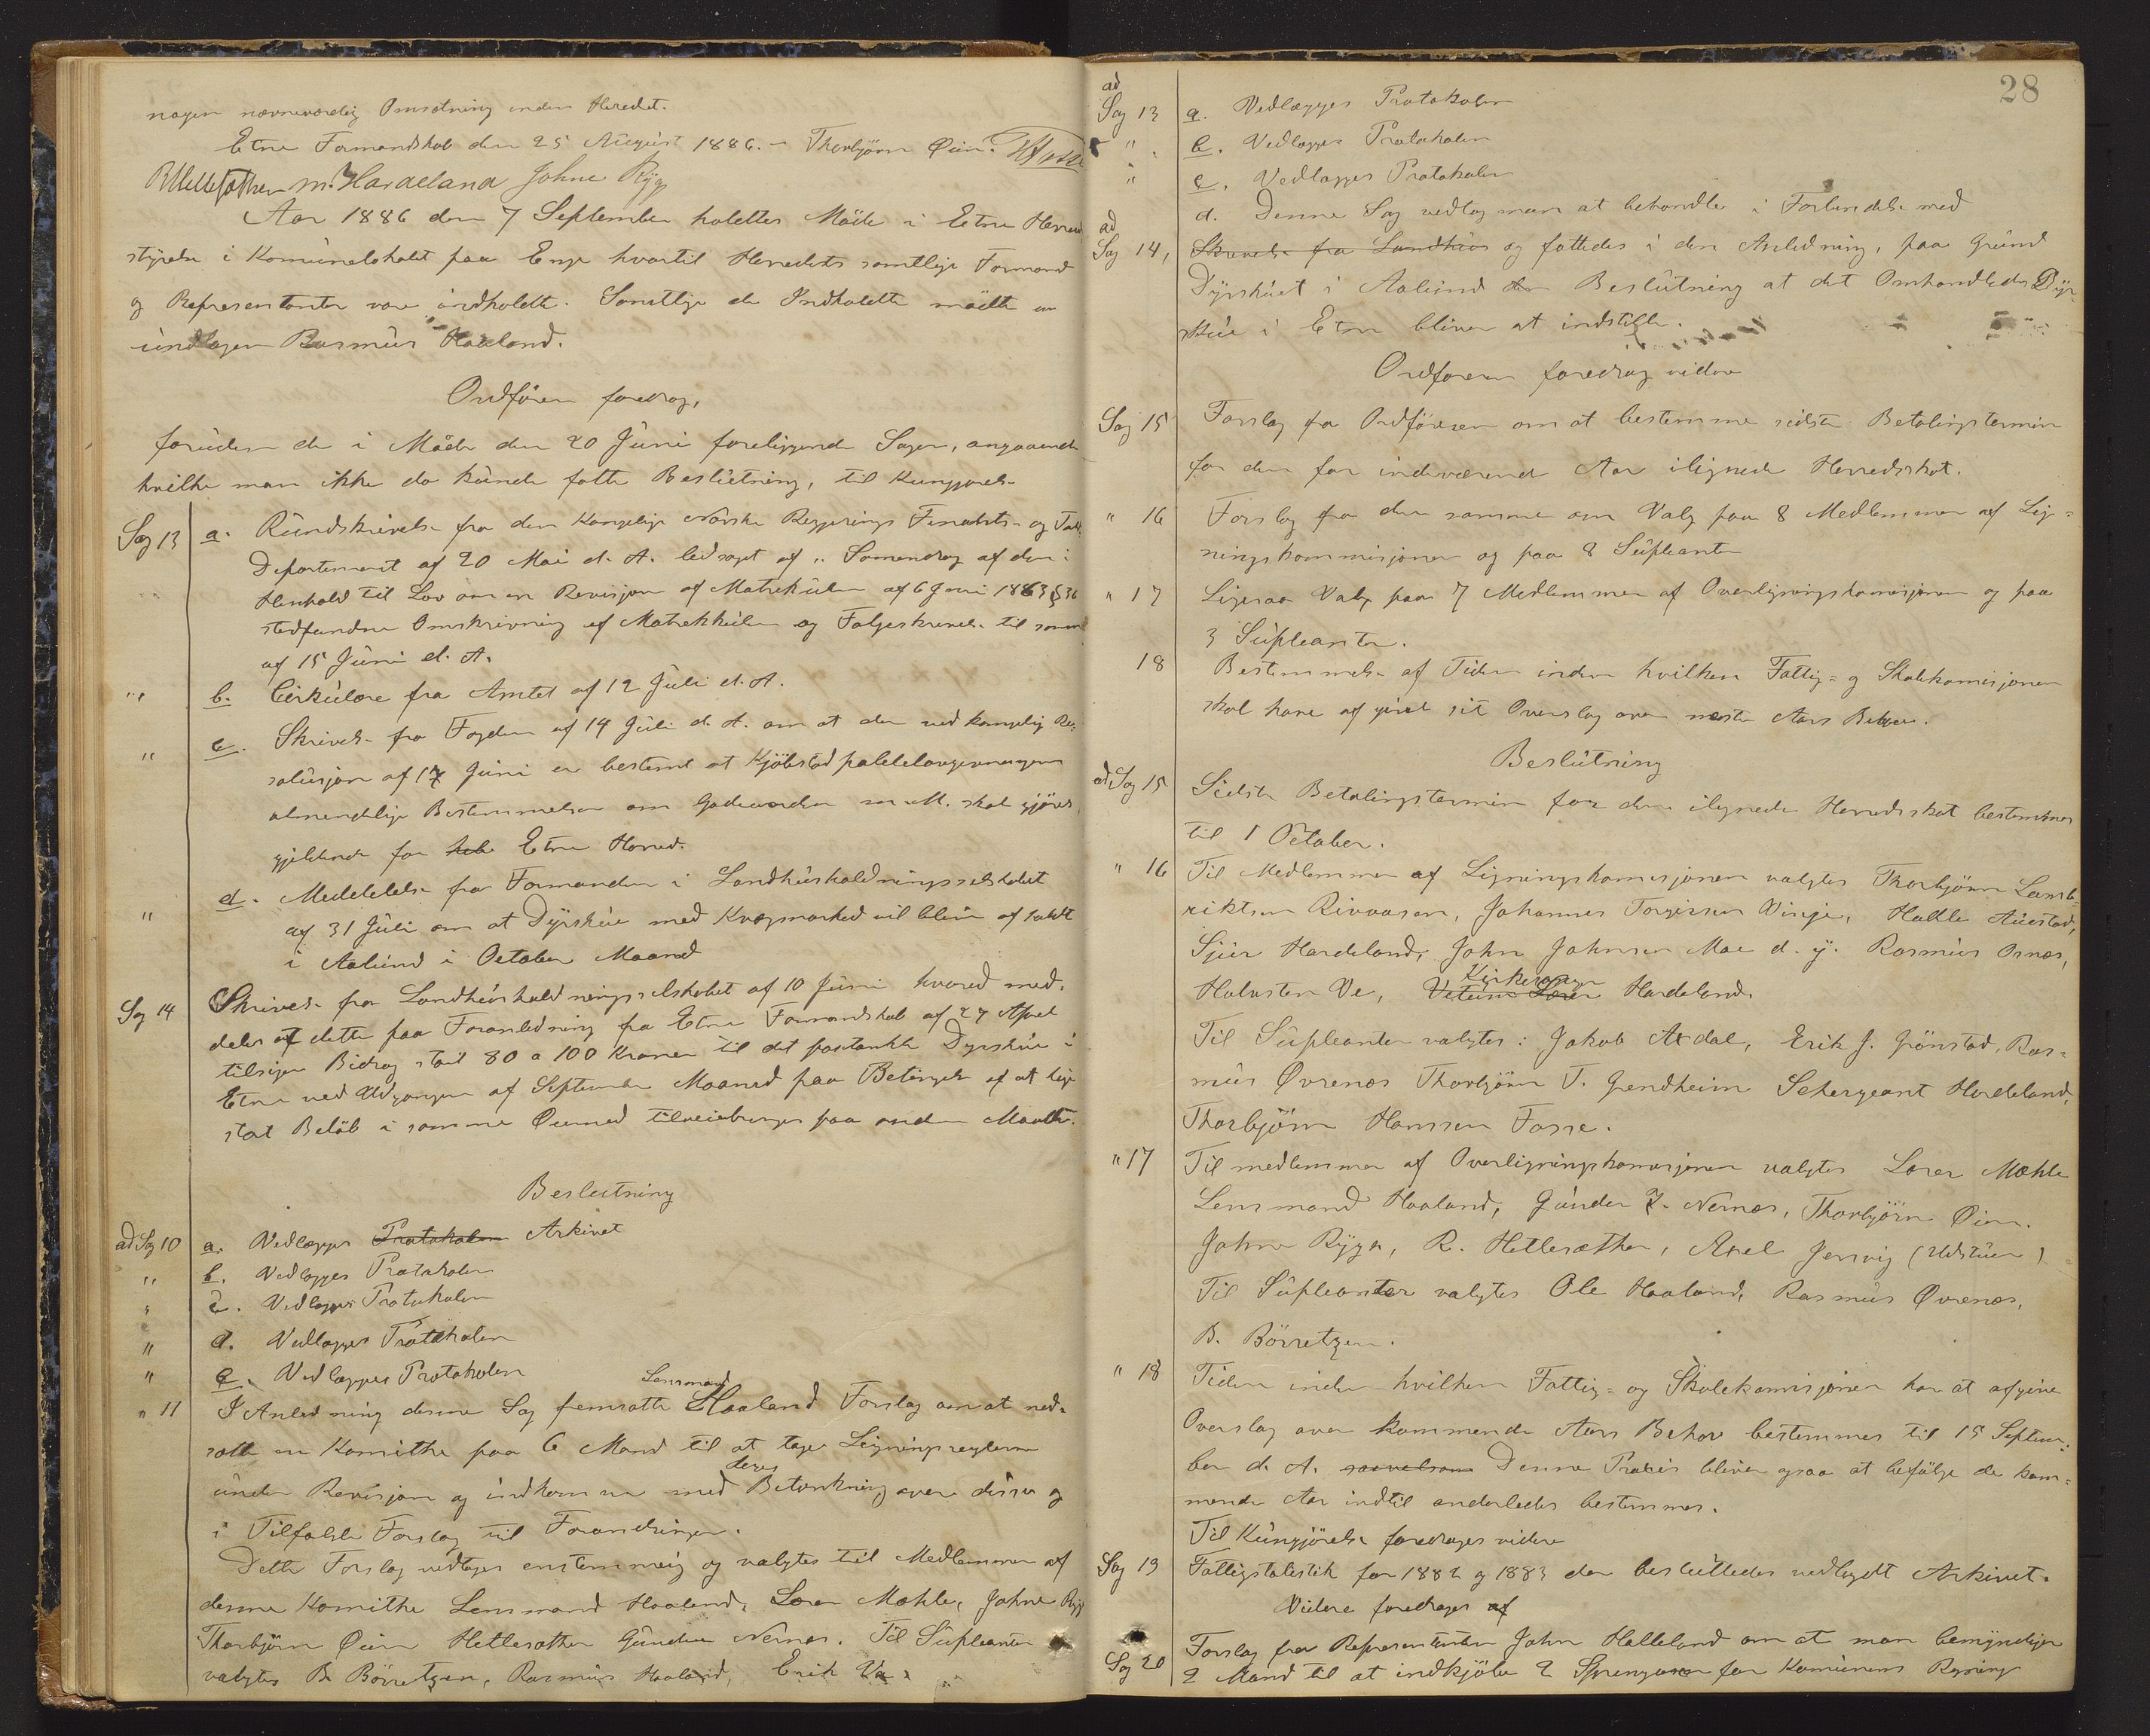 nogen nævneværdig Omsætning inden Heredet.
Etne Formandskab den 25 August 1886. – Thorbjörn Øien.
M. Hardeland Johne Ryg
Aar 1886 den 7 September holdtes Möde i Etne Herreds
styrelse i Komunelokalet paa Enge hvortil Heredets samtlige Formænd
og Representanter vare indkaldte. Samtlige de Indkaldte mödte
undtagen Rasmus Haaland.
Ordfören foredrog,
foruden de i Möde den 20 Juni foreliggende Sager, angaaende
hvilke man ikke da kunde fatte Beslutning, til Kungjörelse
Sag 13 a. Rundskrivelse fra den Kongelige Norske Regjerings Finants- og Told
Departement af 20 Mai d. A. ledsaget af „Samendrag af den i
Henhold til Lov om en Revisjon af Matrikulen af 6 Juni 1863 § 36
stedfundne Omskrivning af Matrikkulen og Følgeskrivelse til samme
af 15 Juni d. A.
" b. Cirkulære fra Amtet af 12 Juli d. A.
" c. Skrivelse fra Fogden af 14 Juli d. A. om at der ved kongelig Re-
solusjon af 17 Juni er bestemt at Kjöbstad
almindelige Bestemmelser om Gadeorden m. M. skal gjöres
gjeldende for hele Etne Hered.
" d. Meddelelse fra Formanden i Landhusholdningsselskabet
af 31 Juli om at Dyrskue med Kvægmarked vil blive afholdt
i Aalund i October Maaned
Sag 14 Skrivelse fra Landhusholdningsselskabet af 10 Juni hvored med-
deles at dette paa Foranledning fra Etne Formandskab af 27 April
tilsiger Bidrag stort 80 a 100 Kroner til det paatænkte Dyrskue i
Etne ved Udgangen af September Maaned paa Betingelse af at lige
stort Belöb i samme Øiemed tilveiebringes paa anden Maade.
Beslutning
ad Sag 10 a. Vedlægges Protokolen Arkivet
" b. Vedlægges Protokolen
" c. Vedlægges Protokolen
" d. Vedlægges Protokolen
" e. Vedlægges Protokolen
Lensmand
" 11 I Anledning denne Sag fremsatte Haaland Forslag om at ned-
sætte en Komithe paa 6 Mand til at tage Ligningsreglerne
deres
under Revisjon og indkomme med Betænkning over disse og
i Tilfælde Forslag til Forandringer.
Dette Forslag vedtoges enstemmig og valgtes til Medlemmer af
denne Komithe Lensmand Haaland, Lærer Mæhle, Johne Ryg
Thorbjörn Øien Hetlesæther Gunder Nernæs. Til Supleanter
valgtes B. Börretzen, Rasmus Haaland, Erik Ve.
28
ad
Sag 13 a. Vedlægges Protokolen
" b. Vedlægges Protokolen
" c. Vedlægges Protokolen
d. Denne Sag vedtog man at behandle i Forbindelse med
ad
Sag 14, Skrivelse fra Landhus og fattedes i den Anledning, paa Grund
Dyrskuet i Aalund den Beslutning at det Omhandlede Dyr-
skue i Etne bliver at indstille.
Ordføreren foredrog videre
Sag 15 Forslag fra Ordföreren om at bestemme sidste Betalingstermin
for den for indeværende Aar ilignede Herredsskat.
" 16 Forslag fra den samme om Valg paa 8 Medlemmer af Lig-
ningskommisjonen og paa 8 Supleanter
" 17 Ligesaa Valg paa 7 Medlemmer af Overligningskomisjonen og paa
3 Supleanter.
18 Bestemmelse af Tiden inden hvilken Fattig- og Skolekomisjonen
skal have afgivet sit Overslag over næste Aars Behov.
Beslutning
ad Sag 15 Sidste Betalingstermin for den ilignede Herredsskat bestemmes
til 1 October.
" 16 Til Medlemmer af Ligningskomisjonen valgtes Thorbjörn Lamb-
riktsen Rivvasen, Johannes Torgirsen Vinje, Halle Auestad,
Sjur Hardeland, John Johnsen Moe d. y. Rasmus Ornæs,
Kirkesanger
Halvsten Ve, Hardeland
Til Supleanter valgtes: Jakob Ardal, Erik J. Grönstad, Ras-
mus Øvrenæs Thorbjörn T. Grendheim Schergeant Hardeland,
Thorbjörn Hansen Fosse.
" 17 Til medlemmer af Overligningskomisjonen valgtes Lærer Mæhle
Lensmand Haaland, Gunder T. Nernæs, Thorbjörn Øien.
Johne Rygn, R. Hetlesæther, Axel Jensvig (Udstuen)
Til Supleanter valgtes Ole Haaland, Rasmus Øvrenæs,
B. Börretzen.
" 18 Tiden inden hvilken Fattig- og Skolekomisjonen har at afgive
Overslag over kommende Aars Behov bestemmes til 15 Septem-
ber d. A. saavelsom Denne Praxis bliver ogsaa at befölge de kom-
mende Aar indtil anderledes bestemmes.
Til Kungjörelse foredroges videre
Sag 19 Fattigstatistik for 1882 og 1883 der besluttedes vedlagdt Arkivet.
Videre foredroges af
Sag 20 Forslag fra Representanten John Halleland om at man bemyndiger
2 Mand til at indkjöbe 2 for Komunens Regning